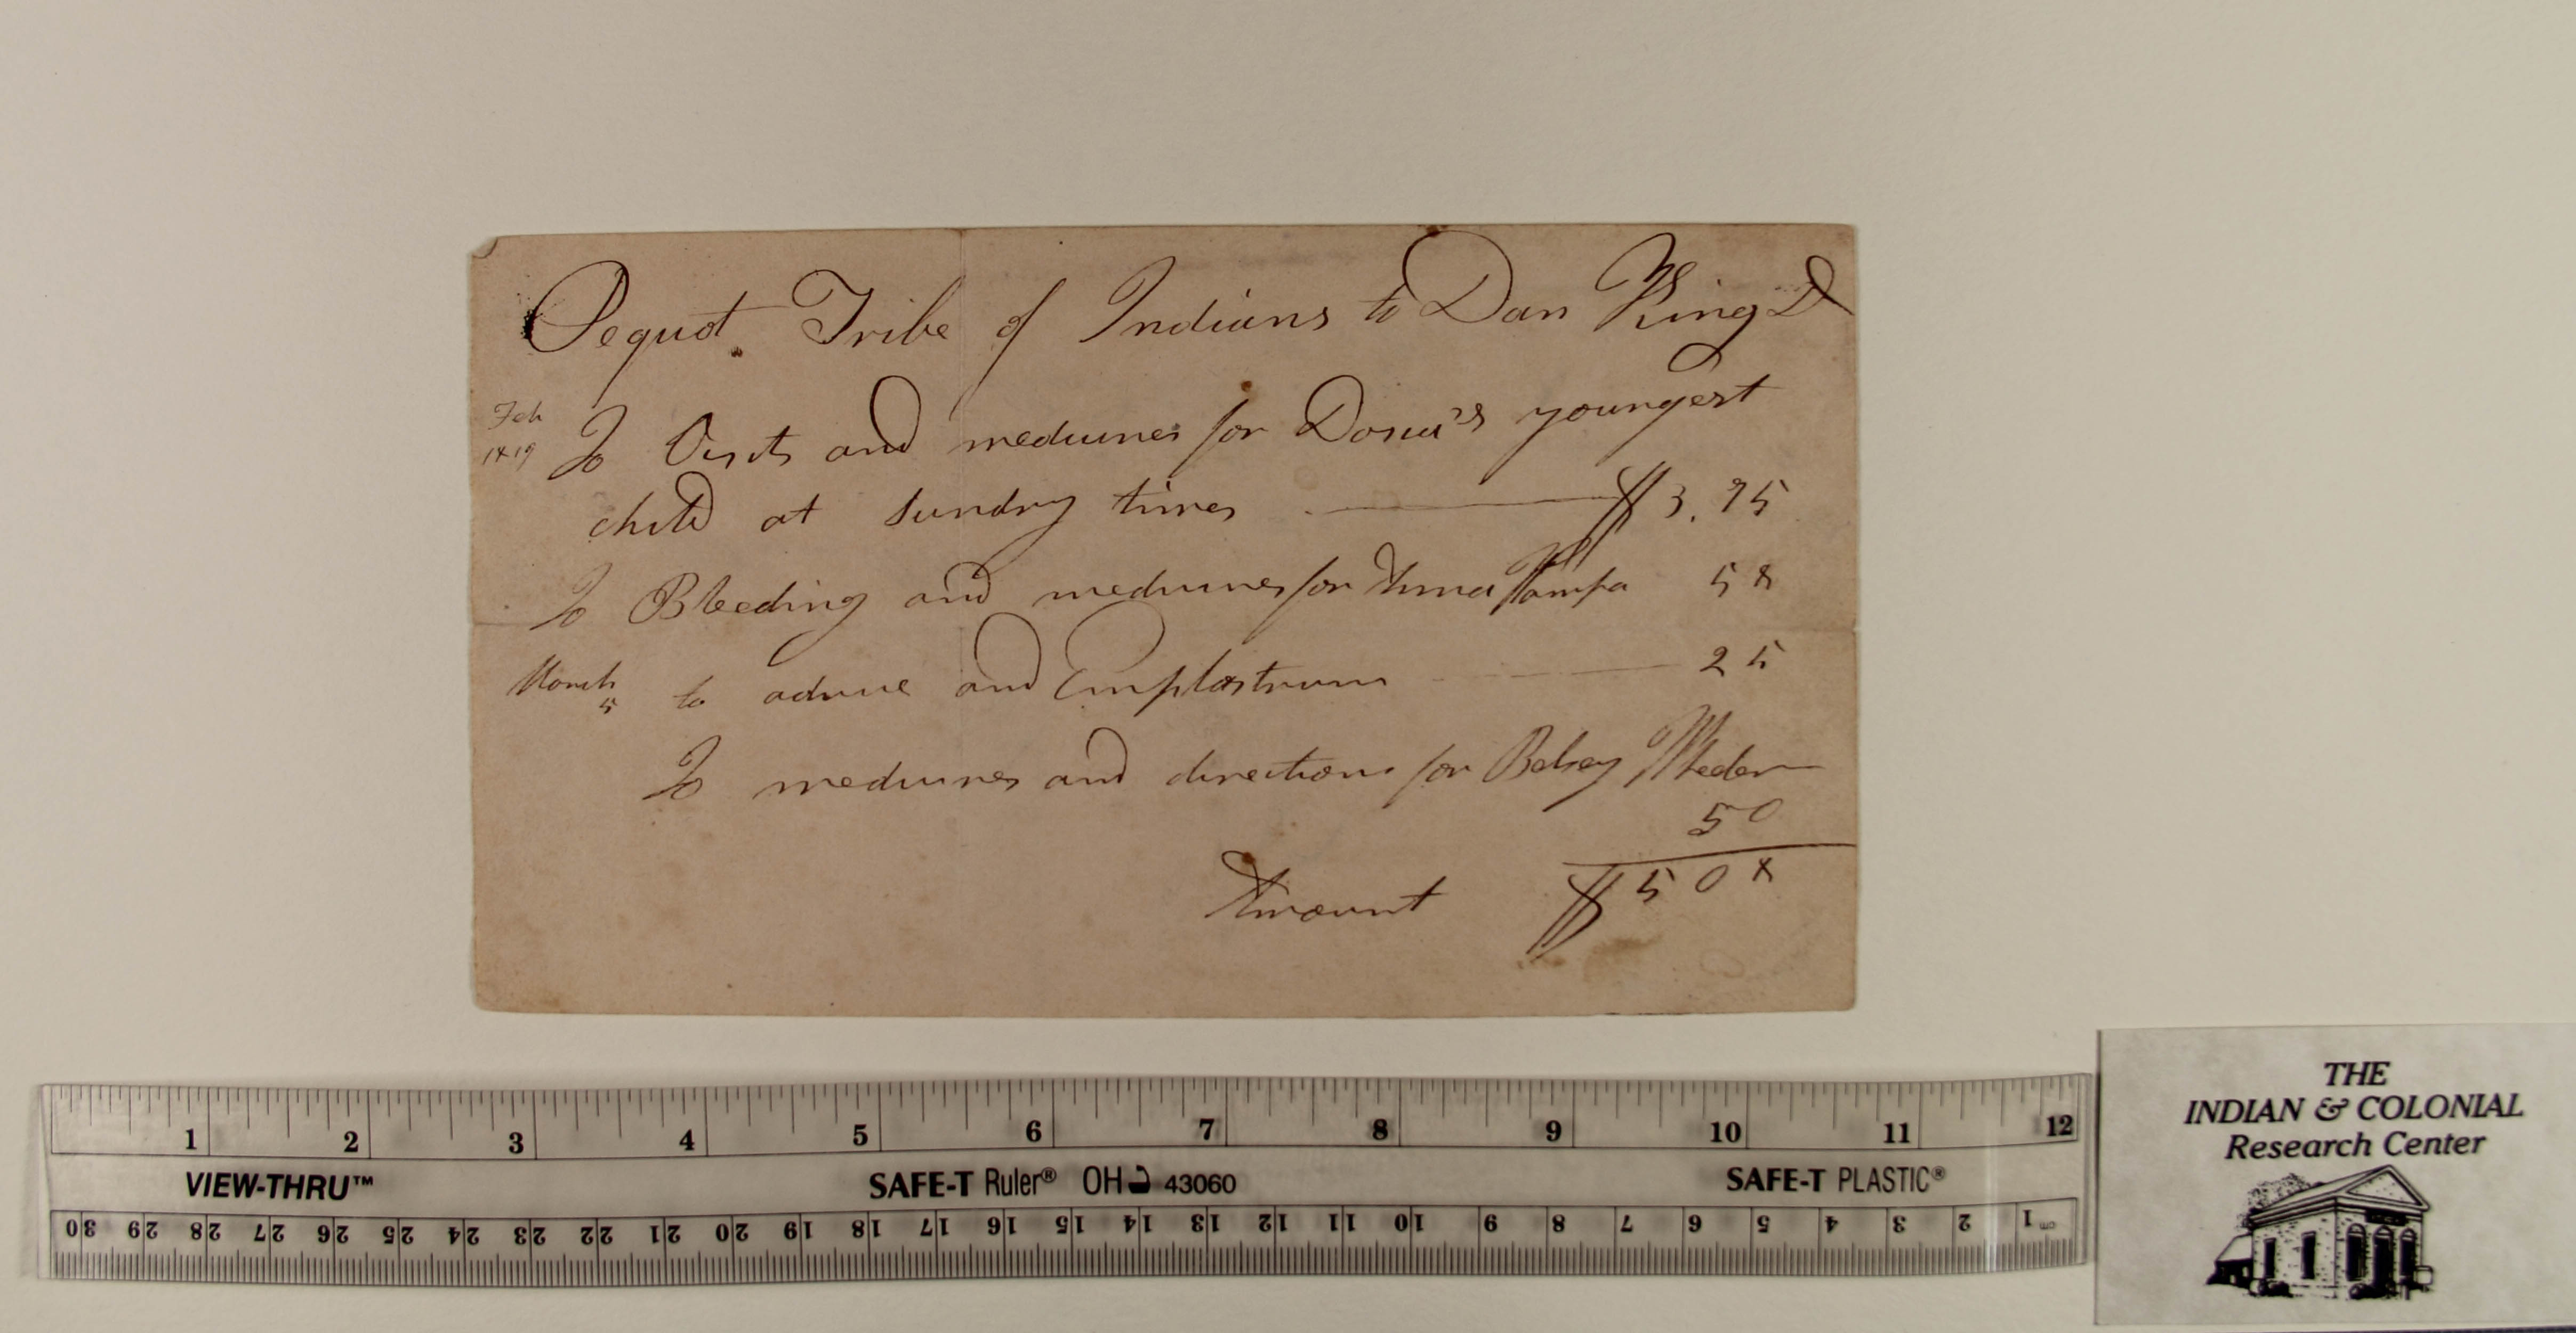 Pequot Tribe of Indians to Dan King D
Feb 1819 To Visits and medicines for Dorcas's youngest
child at sundry times $3.75
To Bleeding and medicines for Anna Wampa 58
March 5 to advice and Emplastrum 25
To medicines and directions for Betsey Wheeler
50
Amount $508
1 2 3 4 5 6 7 8 9 10 11 12
VIEW-THRU™ SAFE-T Ruler® OH 43060 SAFE-T PLASTIC®
30 29 28 27 26 25 24 23 22 21 20 19 18 17 16 15 14 13 12 11 10 9 8 7 6 5 4 3 2 1 cm
THE
INDIAN & COLONIAL
Research Center